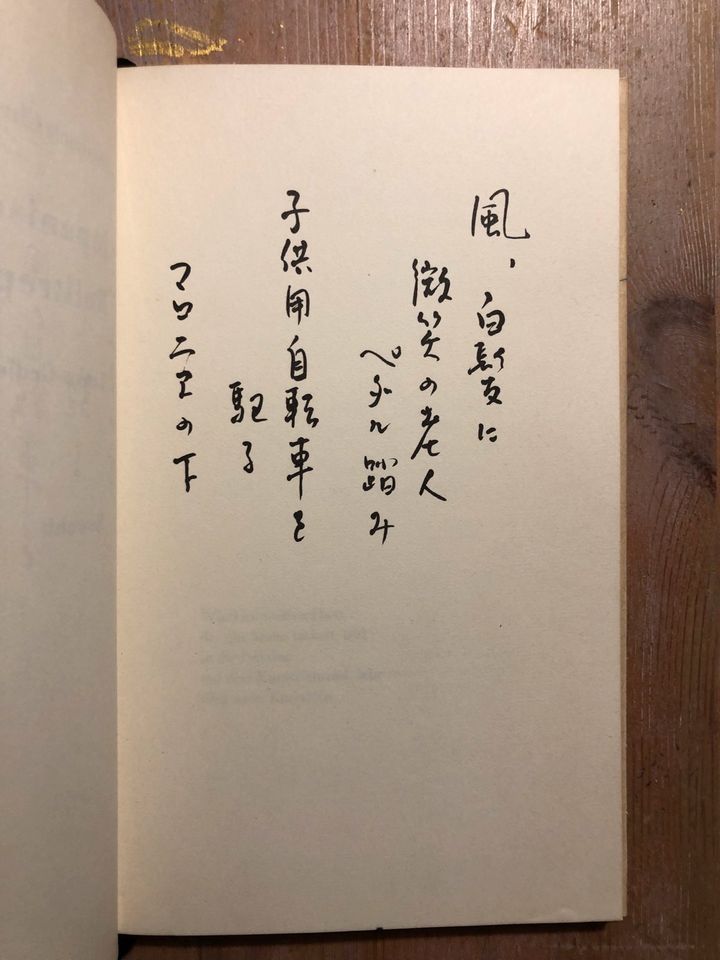 風、白髪に
微笑の老人
ペダル踏み
子供用自転車を
駆る
マロニエの下